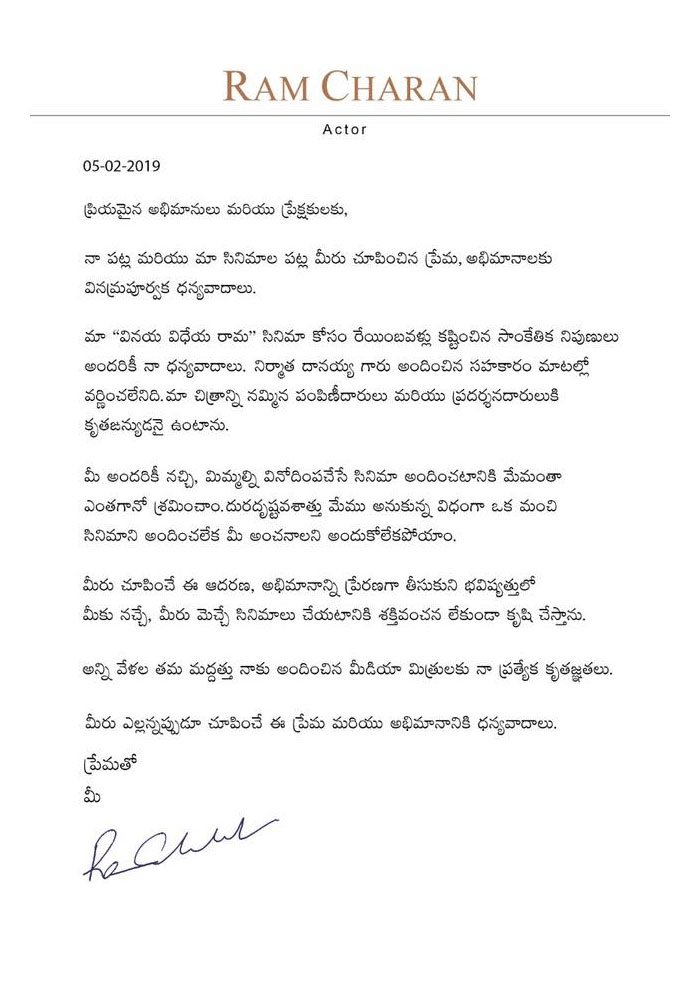 RAM CHARAN
Actor
05-02-2019
ప్రియమైన అభిమానులు మరియు ప్రేక్షకులకు,
నా పట్ల మరియు మా సినిమాల పట్ల మీరు చూపించిన ప్రేమ, అభిమానాలకు
వినమ్రపూర్వక ధన్యవాదాలు.
మా “వినయ విధేయ రామ” సినిమా కోసం రేయింబవళ్లు కష్టించిన సాంకేతిక నిపుణులు
అందరికీ నా ధన్యవాదాలు. నిర్మాత దానయ్య గారు అందించిన సహకారం మాటల్లో
వర్ణించలేనిది.మా చిత్రాన్ని నమ్మిన పంపిణీదారులు మరియు ప్రదర్శనదారులుకి
కృతఙన్యుడనై ఉంటాను.
మీ అందరికీ నచ్చి, మిమ్మల్ని వినోదింపచేసే సినిమా అందించటానికి మేమంతా
ఎంతగానో శ్రమించాం.దురదృష్టవశాత్తు మేము అనుకున్న విధంగా ఒక మంచి
సినిమాని అందించలేక మీ అంచనాలని అందుకోలేకపోయాం.
మీరు చూపించే ఈ ఆదరణ, అభిమానాన్ని ప్రేరణగా తీసుకుని భవిష్యత్తులో
మీకు నచ్చే, మీరు మెచ్చే సినిమాలు చేయటానికి శక్తివంచన లేకుండా కృషి చేస్తాను.
అన్ని వేళల తమ మద్దత్తు నాకు అందించిన మీడియా మిత్రులకు నా ప్రత్యేక కృతజ్ఞతలు.
మీరు ఎల్లన్నప్పుడూ చూపించే ఈ ప్రేమ మరియు అభిమానానికి ధన్యవాదాలు.
ప్రేమతో
మీ